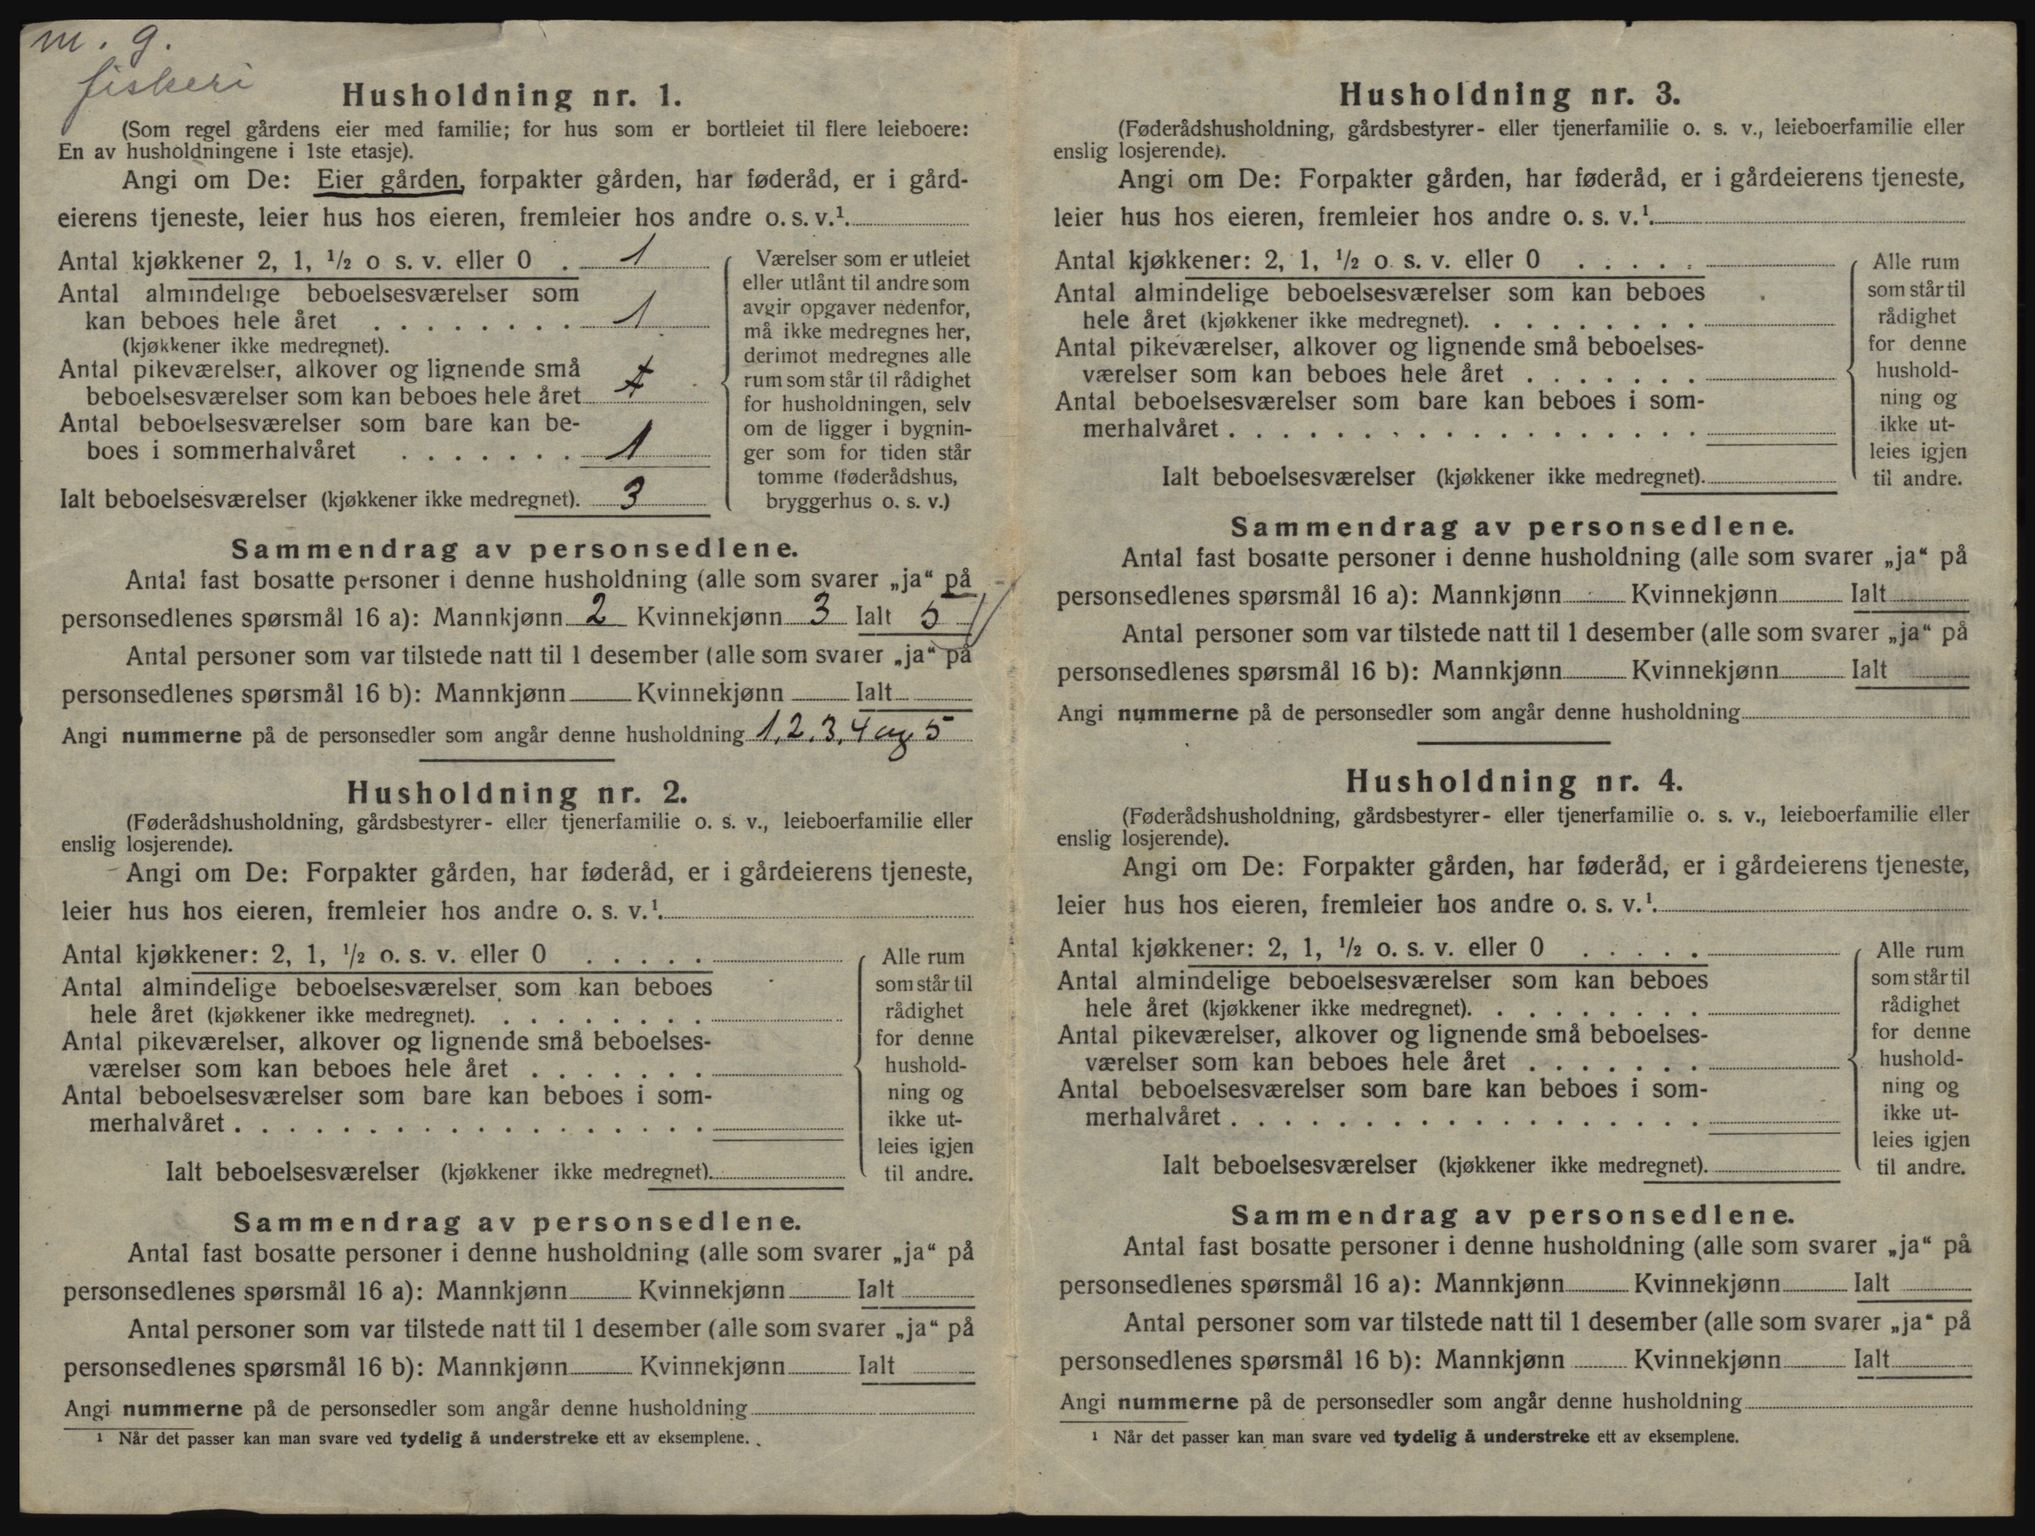 m. g.
fiskeri
Husholdning nr. 1.
(Som regel gårdens eier med familie; for hus som er bortleiet til flere leieboere:
En av husholdningene i 1ste etasje).
Angi om De: Eier gården, forpakter gården, har føderåd, er i gård-
eierens tjeneste, leier hus hos eieren, fremleier hos andre o. s. v.¹
Antal kjøkkener 2, 1, ½ o s. v. eller 0 . 1
Antal almindelige beboelsesværelser som
kan beboes hele året . . . . . . . . 1
(kjøkkener ikke medregnet).
Antal pikeværelser, alkover og lignende små
beboelsesværelser som kan beboes hele året
Antal beboelsesværelser som bare kan be-
boes i sommerhalvåret . . . . . . . 1
Ialt beboelsesværelser (kjøkkener ikke medregnet). 3
Værelser som er utleiet
eller utlånt til andre som
avgir opgaver nedenfor,
må ikke medregnes her,
derimot medregnes alle
rum som står til rådighet
for husholdningen, selv
om de ligger i bygnin-
ger som for tiden står
tomme (føderådshus,
bryggerhus o. s. v.)
Sammendrag av personsedlene.
Antal fast bosatte personer i denne husholdning (alle som svarer „ja“ på
personsedlenes spørsmål 16 a): Mannkjønn 2 Kvinnekjønn 3 Ialt 5
Antal personer som var tilstede natt til 1 desember (alle som svarer „ja“ på
personsedlenes spørsmål 16 b): Mannkjønn Kvinnekjønn Ialt
Angi nummerne på de personsedler som angår denne husholdning 1, 2, 3, 4 og 5
Husholdning nr. 2.
(Føderådshusholdning, gårdsbestyrer- eller tjenerfamilie o. s. v., leieboerfamilie eller
enslig losjerende).
Angi om De: Forpakter gården, har føderåd, er i gårdeierens tjeneste,
leier hus hos eieren, fremleier hos andre o. s. v.¹.
Antal kjøkkener: 2, 1, ½ o. s. v. eller 0 . . . . .
Antal almindelige beboelsesværelser som kan beboes
hele året (kjøkkener ikke medregnet). . . . . . . . .
Antal pikeværelser, alkover og lignende små beboelses-
værelser som kan beboes hele året . . . . . . .
Antal beboelsesværelser som bare kan beboes i som-
merhalvåret . . . . . . . . . . . . . . . . . .
Ialt beboelsesværelser (kjøkkener ikke medregnet).
Alle rum
som står til
rådighet
for denne
hushold-
ning og
ikke ut-
leies igjen
til andre.
Sammendrag av personsedlene.
Antal fast bosatte personer i denne husholdning (alle som svarer „ja“ på
personsedlenes spørsmål 16 a): Mannkjønn Kvinnekjønn Ialt
Antal personer som var tilstede natt til 1 desember (alle som svarer „ja“ på
personsedlenes spørsmål 16 b): Mannkjønn Kvinnekjønn Ialt
Angi nummerne på de personsedler som angår denne husholdning
¹ Når det passer kan man svare ved tydelig å understreke ett av eksemplene.
Husholdning nr. 3.
(Føderådshusholdning, gårdsbestyrer- eller tjenerfamilie o. s. v., leieboerfamilie eller
enslig losjerende).
Angi om De: Forpakter gården, har føderåd, er i gårdeierens tjeneste,
leier hus hos eieren, fremleier hos andre o. s. v.¹.
Antal kjøkkener: 2, 1, ½ o. s. v. eller 0 . . . . .
Antal almindelige beboelsesværelser som kan beboes
hele året (kjøkkener ikke medregnet). . . . . . . . .
Antal pikeværelser, alkover og lignende små beboelses-
værelser som kan beboes hele året . . . . . . .
Antal beboelsesværelser som bare kan beboes i som-
merhalvåret . . . . . . . . . . . . . . . . . .
Ialt beboelsesværelser (kjøkkener ikke medregnet).
Alle rum
som står til
rådighet
for denne
hushold-
ning og
ikke ut-
leies igjen
til andre.
Sammendrag av personsedlene.
Antal fast bosatte personer i denne husholdning (alle som svarer „ja“ på
personsedlenes spørsmål 16 a): Mannkjønn Kvinnekjønn Ialt
Antal personer som var tilstede natt til 1 desember (alle som svarer „ja“ på
personsedlenes spørsmål 16 b): Mannkjønn Kvinnekjønn Ialt
Angi nummerne på de personsedler som angår denne husholdning
Husholdning nr. 4.
(Føderådshusholdning, gårdsbestyrer- eller tjenerfamilie o. s. v., leieboerfamilie eller
enslig losjerende).
Angi om De: Forpakter gården, har føderåd, er i gårdeierens tjeneste,
leier hus hos eieren, fremleier hos andre o. s. v.¹.
Antal kjøkkener: 2, 1, ½ o. s. v. eller 0 . . . . .
Antal almindelige beboelsesværelser som kan beboes
hele året (kjøkkener ikke medregnet). . . . . . . . .
Antal pikeværelser, alkover og lignende små beboelses-
værelser som kan beboes hele året . . . . . . .
Antal beboelsesværelser som bare kan beboes i som-
merhalvåret . . . . . . . . . . . . . . . . . .
Ialt beboelsesværelser (kjøkkener ikke medregnet).
Alle rum
som står til
rådighet
for denne
hushold-
ning og
ikke ut-
leies igjen
til andre.
Sammendrag av personsedlene.
Antal fast bosatte personer i denne husholdning (alle som svarer „ja“ på
personsedlenes spørsmål 16 a): Mannkjønn Kvinnekjønn Ialt
Antal personer som var tilstede natt til 1 desember (alle som svarer „ja“ på
personsedlenes spørsmål 16 b): Mannkjønn Kvinnekjønn Ialt
Angi nummerne på de personsedler som angår denne husholdning
¹ Når det passer kan man svare ved tydelig å understreke ett av eksemplene.